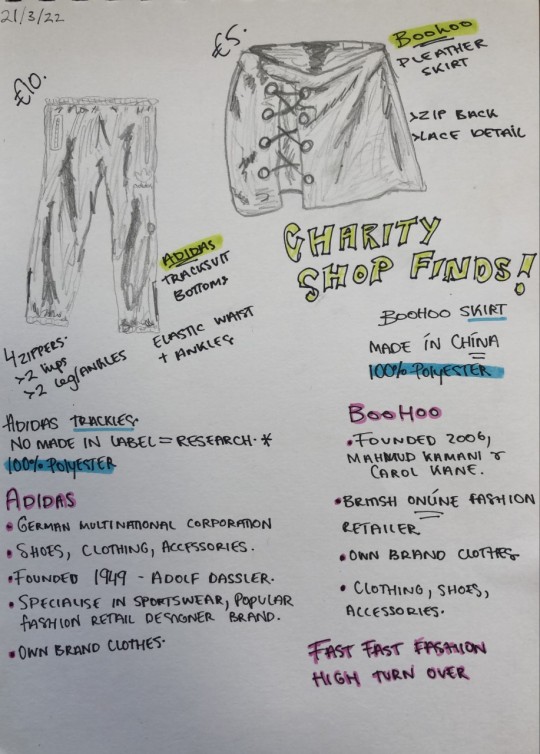 21/3/22
£5.
BooHoo
PLEATHER
SKIRT
>ZIP BACK
>LACE DETAIL
£10.
ADIDAS
TRACKSUIT
BOTTOMS
ELASTIC WAIST
+ ANKLES
4 ZIPPERS.
>2 hips
>2 leg/ANKLES
CHARITY
SHOP FINDS!
BOOHOO SKIRT
MADE IN CHINA
100% POLYESTER
ADIDAS TRACKIES.
NO MADE IN LABEL = RESEARCH. *
100% POLYESTER
ADIDAS
• GERMAN MULTINATIONAL CORPORATION
• SHOES, CLOTHING, ACCESSORIES.
• FOUNDED 1949 - ADOLF DASSLER.
• SPECIALISE IN SPORTSWEAR, POPULAR
FASHION RETAIL DESIGNER BRAND.
• OWN BRAND CLOTHES.
BooHoo
• FOUNDED 2006,
MAHMUD KAMANI &
CAROL KANE.
• BRITISH ONLINE FASHION
RETAILER
• OWN BRAND CLOTHES
• CLOTHING, SHOES,
ACCESSORIES.
FAST FAST FASHION
HIGH TURN OVER